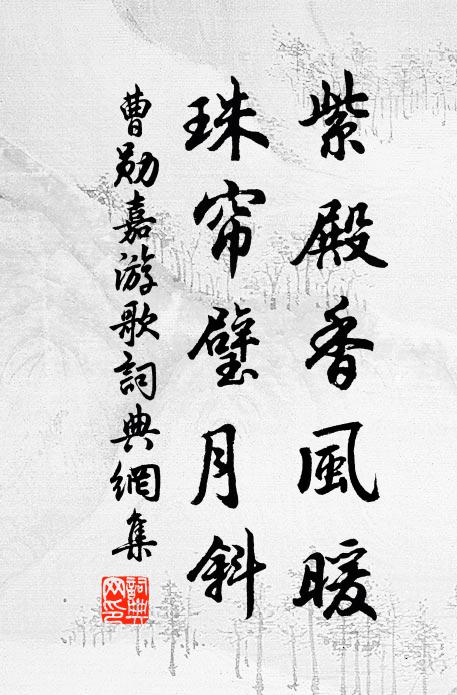 紫殿香風暖
珠帘璧月斜
曹勛嘉游歌詞典網集
詞典網印